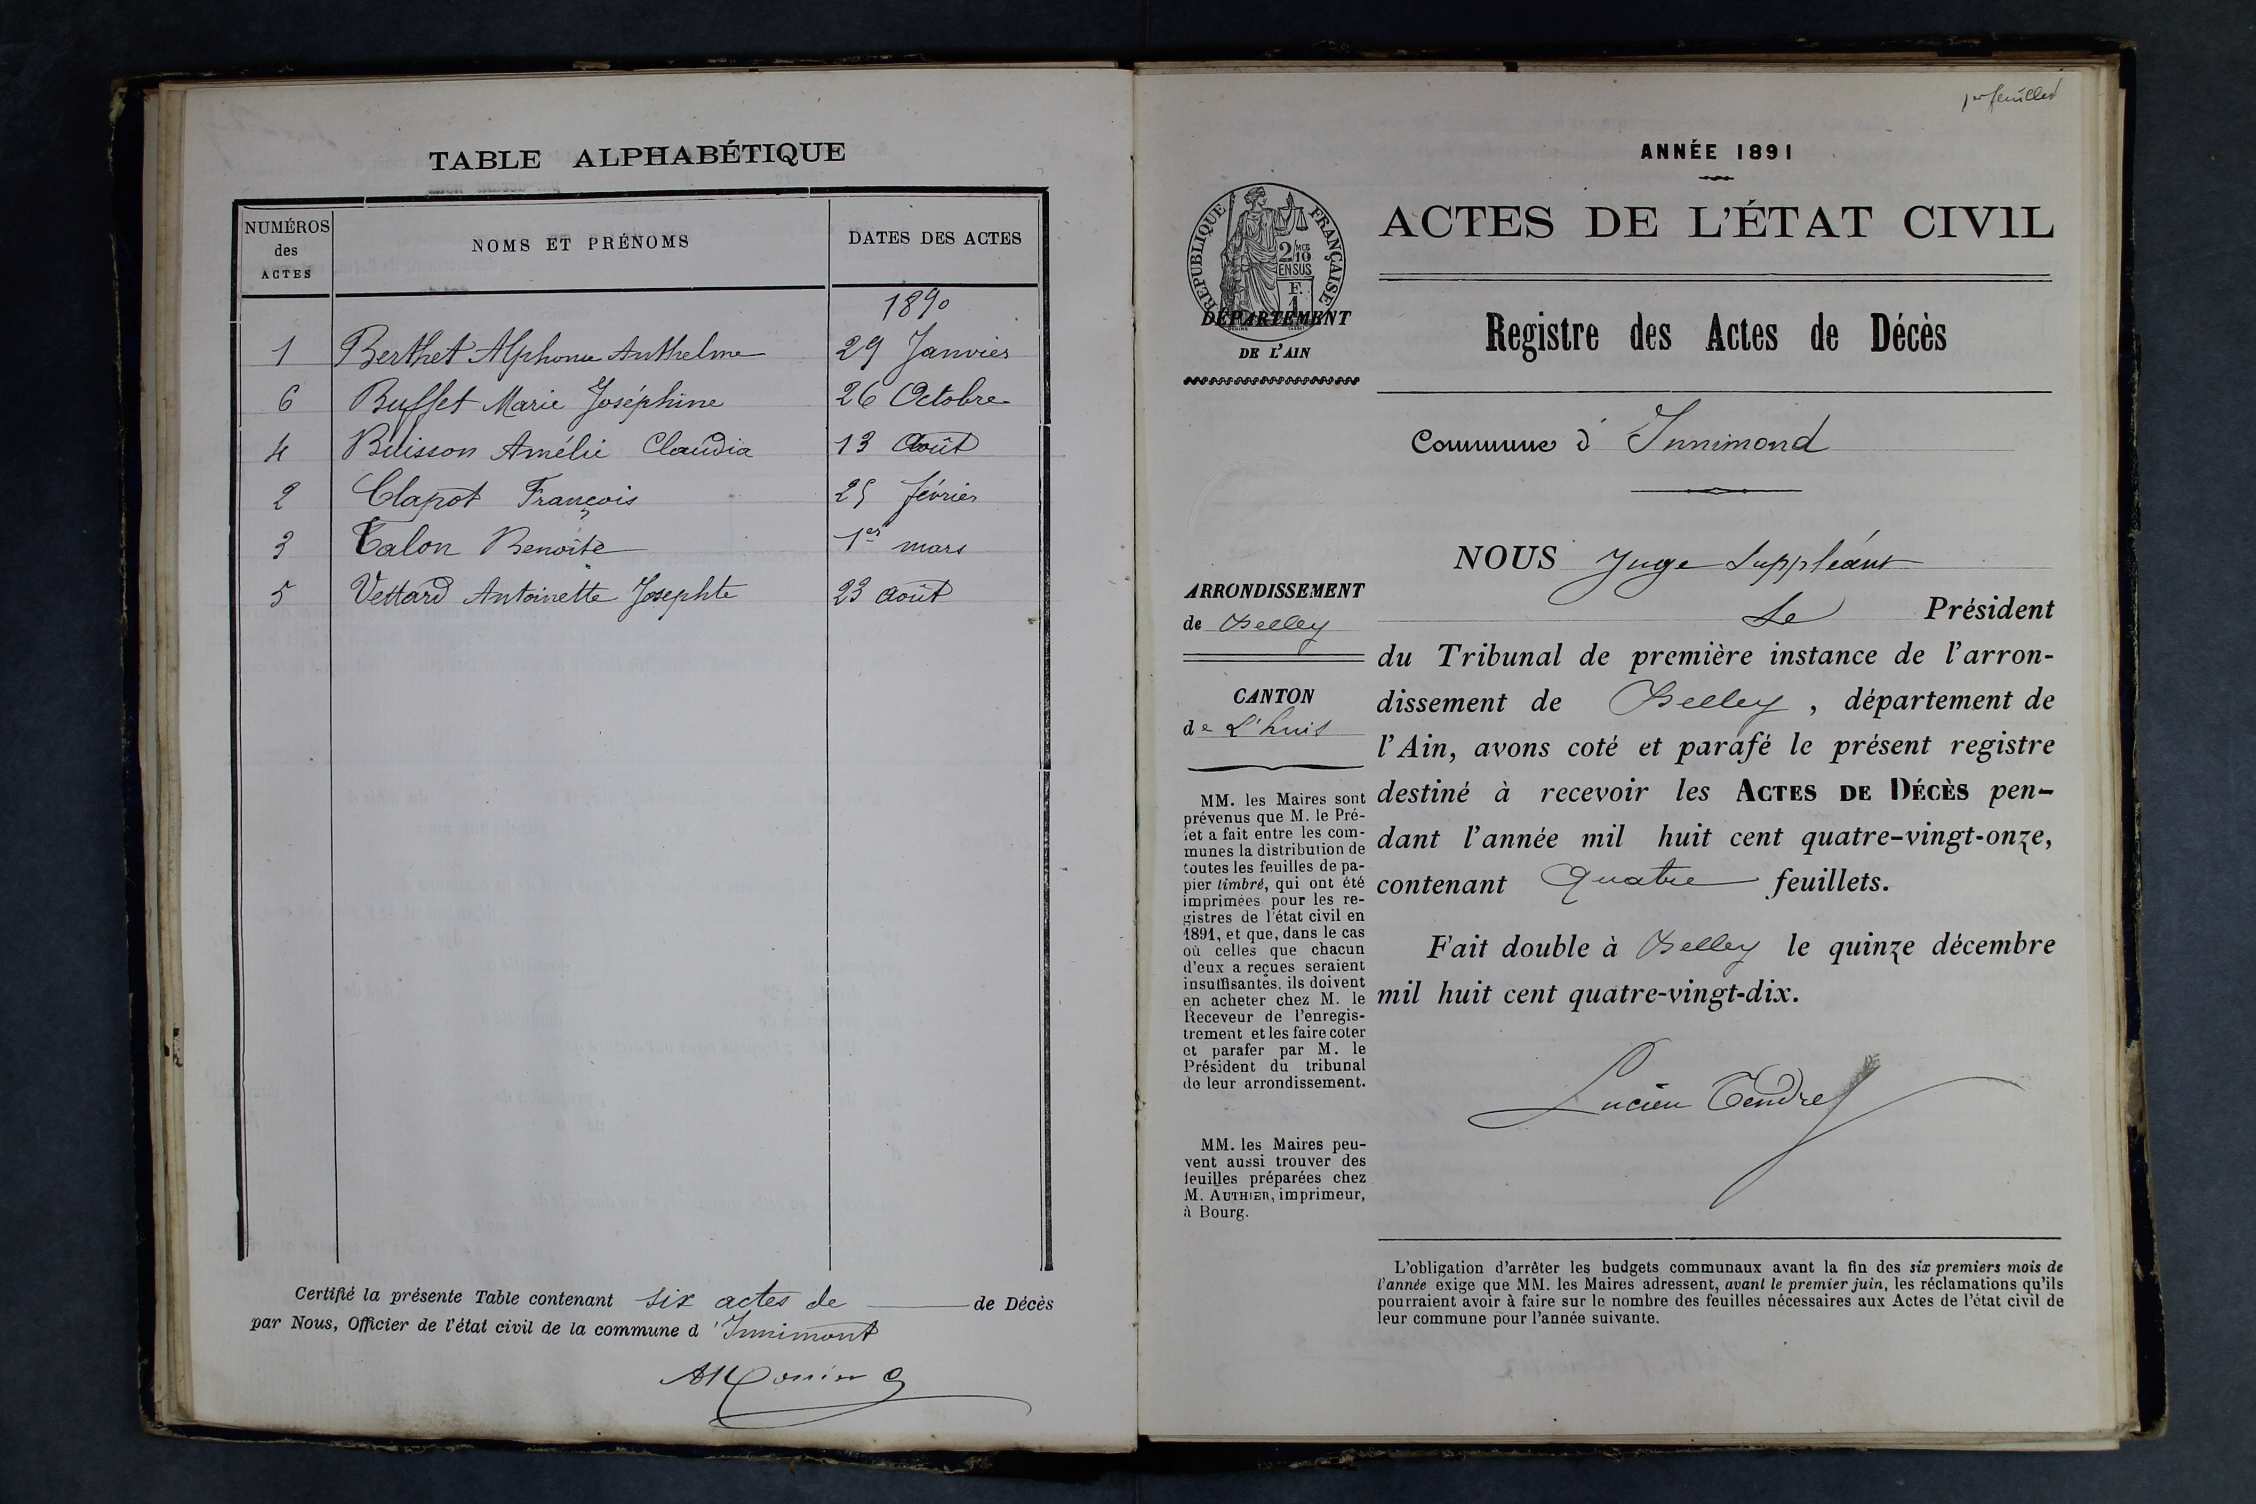 TABLE ALPHABÉTIQUE
NUMÉROS des ACTES
NOMS ET PRÉNOMS
DATES DES ACTES
1890
1 Berthet Alphonse Anthelme 29 Janvier
6 Buffet Marie Joséphine 26 Octobre
4 Buisson Amélie Claudia 13 Août
2 Clapot François 25 février
3 Talon Benoîte 1er mars
5 Vettard Antoinette Josephte 23 août
Certifié la présente Table contenant six actes de de Décès
par Nous, Officier de l'état civil de la commune d'Innimont
1er feuillet
ANNÉE 1891
ACTES DE L'ÉTAT CIVIL
RÉPUBLIQUE FRANÇAISE
2/10 EN SUS
DÉPARTEMENT
DE L'AIN
Registre des Actes de Décès
Commune d'Innimond
ARRONDISSEMENT
de Belley
CANTON
de L'huis
MM. les Maires sont
prévenus que M. le Pré-
fet a fait entre les com-
munes la distribution de
toutes les feuilles de pa-
pier timbré, qui ont été
imprimées pour les re-
gistres de l'état civil en
1891, et que, dans le cas
où celles que chacun
d'eux a reçues seraient
insuffisantes, ils doivent
en acheter chez M. le
Receveur de l'enregis-
trement et les faire coter
et parafer par M. le
Président du tribunal
de leur arrondissement.
MM. les Maires peu-
vent aussi trouver des
feuilles préparées chez
M. AUTHIER, imprimeur,
à Bourg.
NOUS Juge Suppléant
Le Président
du Tribunal de première instance de l'arron-
dissement de Belley, département de
l'Ain, avons coté et parafé le présent registre
destiné à recevoir les ACTES DE DÉCÈS pen-
dant l'année mil huit cent quatre-vingt-onze,
contenant Quatre feuillets.
Fait double à Belley le quinze décembre
mil huit cent quatre-vingt-dix.
Lucien Tendret
L'obligation d'arrêter les budgets communaux avant la fin des six premiers mois de
l'année exige que MM. les Maires adressent, avant le premier juin, les réclamations qu'ils
pourraient avoir à faire sur le nombre des feuilles nécessaires aux Actes de l'état civil de
leur commune pour l'année suivante.